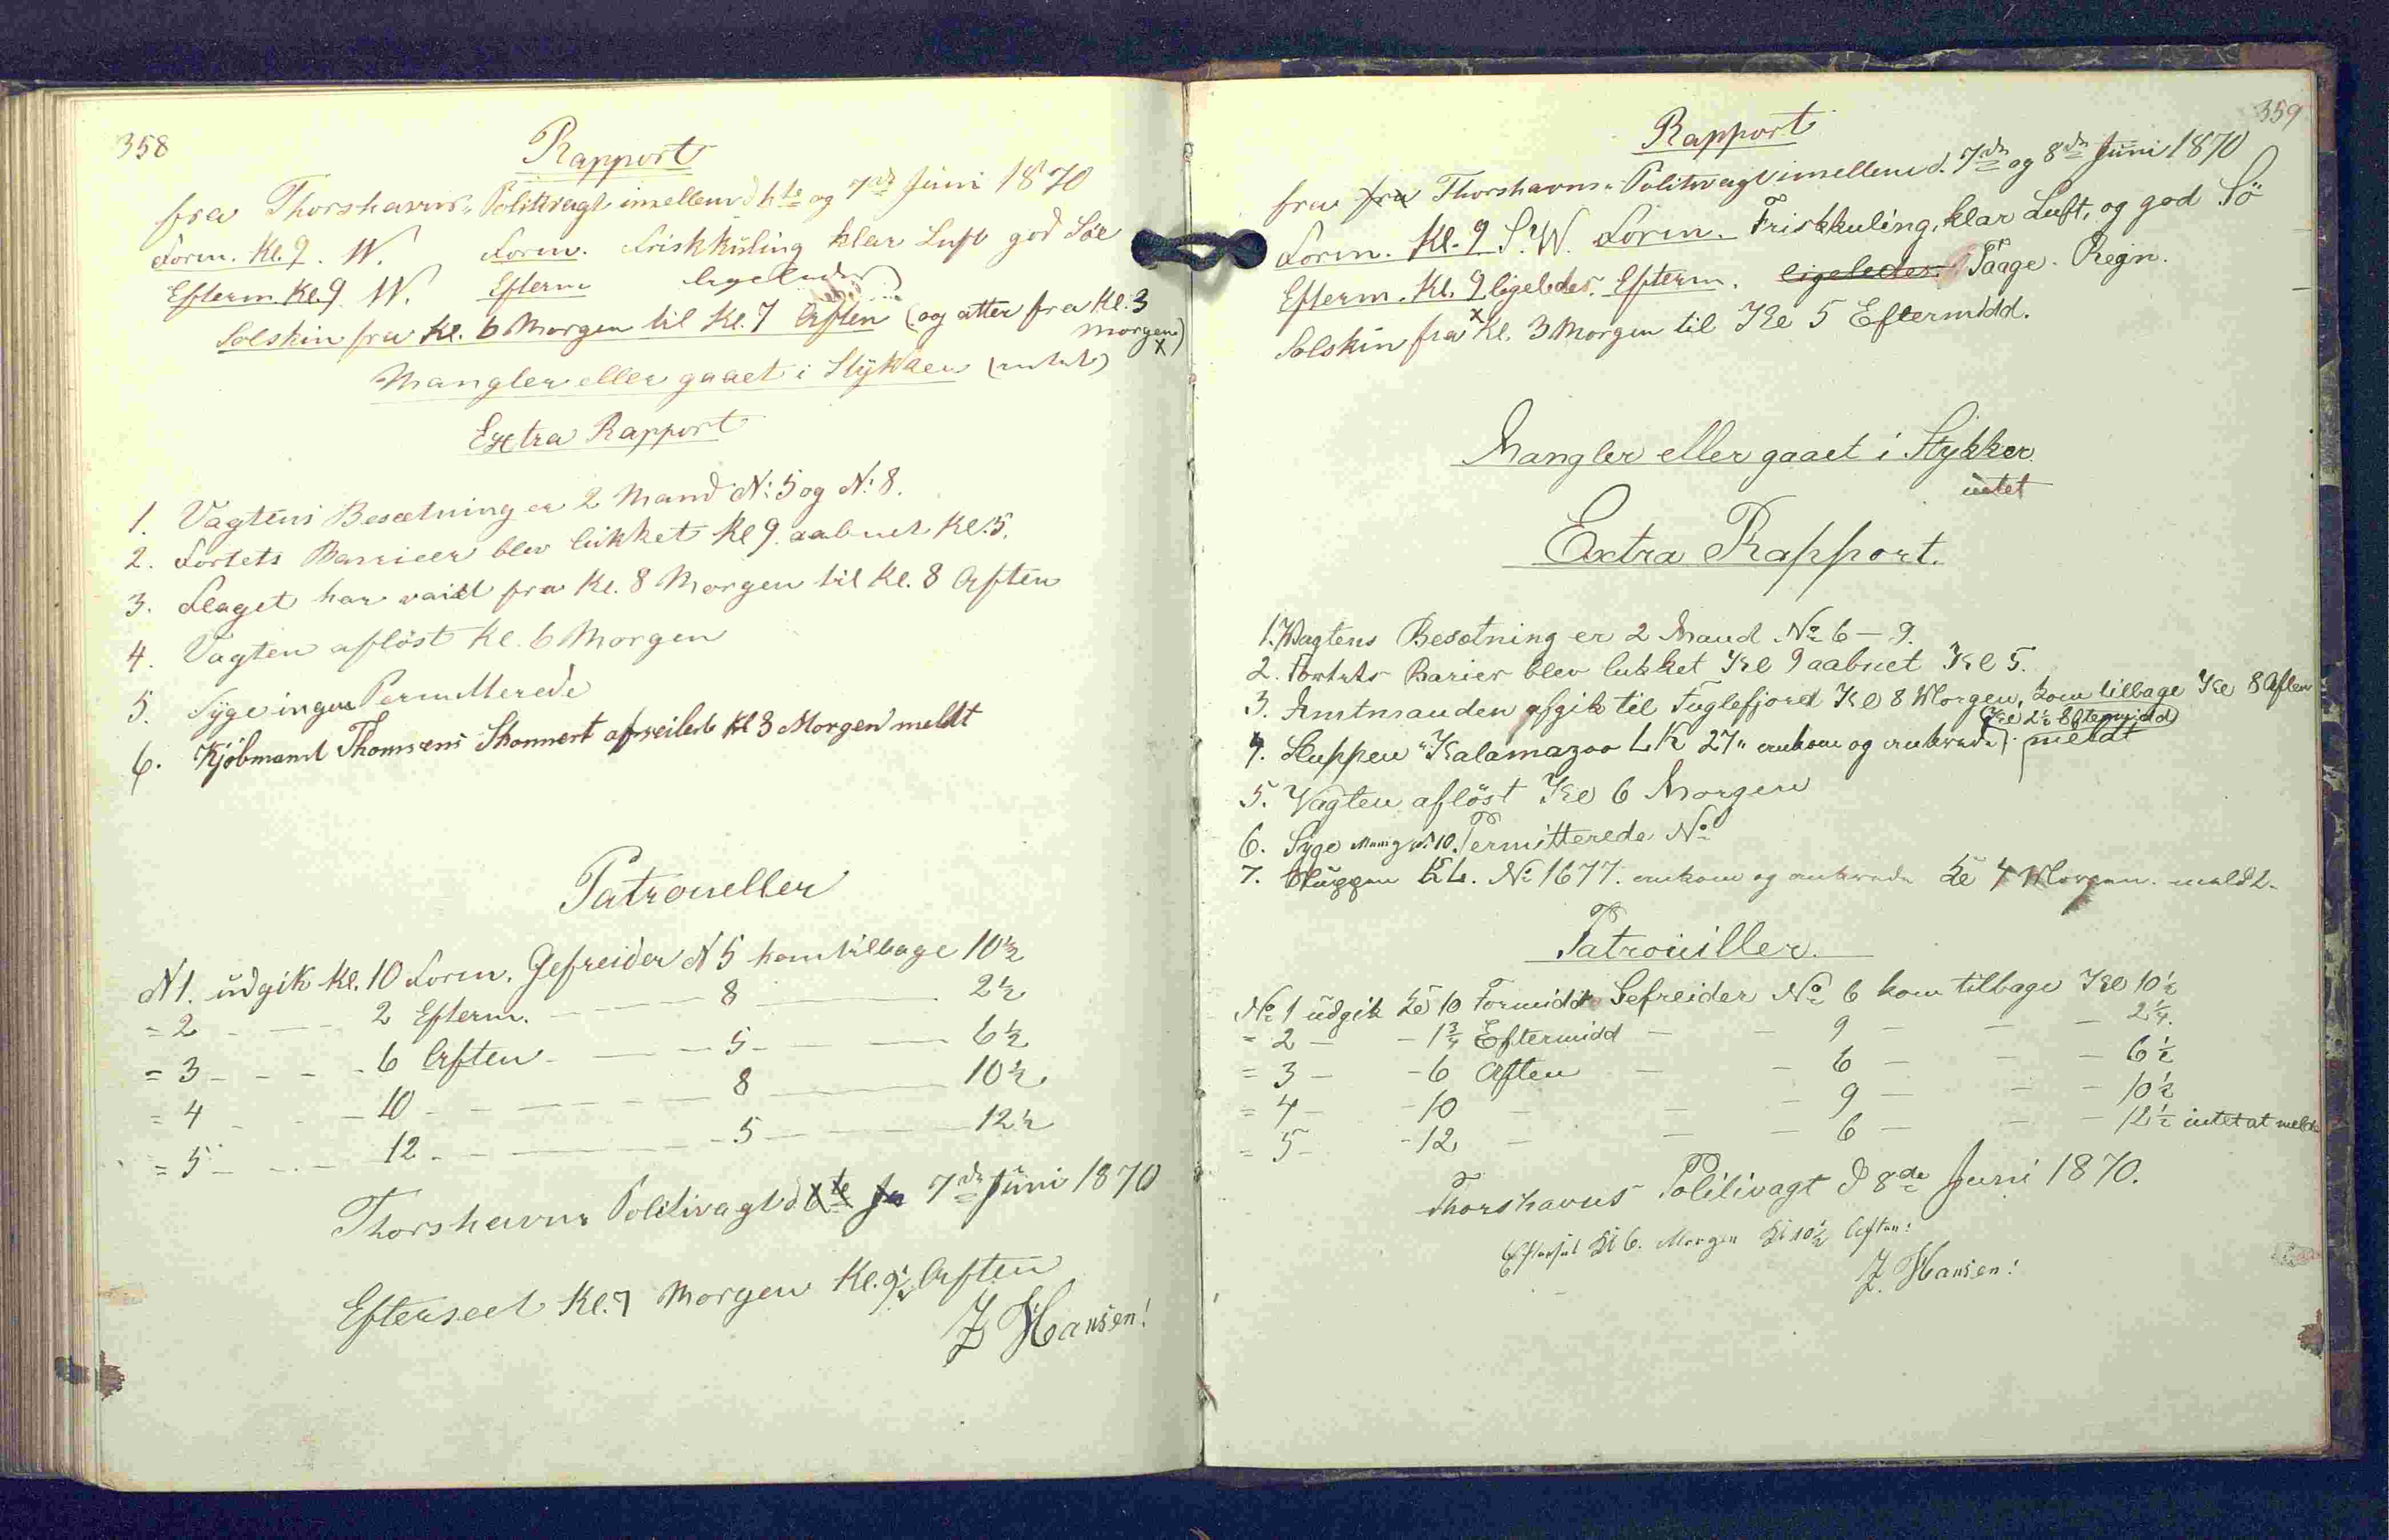 358
Rapport
fra Thorshavns Politivagt imellem d 6te og 7de Juni 1870
Form. Kl. 9. W. Form. Friskkuling klar Luft god Søe
Efterm. Kl. 9 W. Efterm ligeledes
Solskin fra Kl. 6 Morgen til Kl. 7 Aften (og atter fra Kl. 3
Morgen) x
Mangler eller gaaet i Stykker (intet)
Extra Rapport
1. Vagtens Besætning er 2 Mand N: 5 og N: 8.
2. Fortets Barrieer blev lukket Kl 9 aabnet Kl. 5.
3. Flaget har vaiet fra Kl. 8 Morgen til Kl. 8 Aften
4. Vagten aflöst Kl. 6 Morgen
5. Syge ingen Permitterede
6. Kjöbmand Thomsens Skonnert afseilede Kl 3 Morgen meldt
Patroueller
N 1. udgik Kl. 10 Form. Gefreider N 5 kom tilbage 10½
= 2 - - 2 Efterm. - - 8 - 2½
= 3 - - - 6 Aften - - 5 - - 6½
= 4 - - 10 - - - 8 - 10½
= 5 - - - 12 - - - 5 - - 12½
Thorshavns Politivagt d 6te Ju 7de Juni 1870
Efterseet Kl. 7 Morgen Kl. 9½ Aften
J Hansen!
359
Rapport
fra fra Thorshavns Politivagt imellem d. 7de og 8de Juni 1870
Form. Kl. 9 S.W. Form. Friskkuling, klar Luft, og god Sö
Efterm. Kl. 9 ligeledes. Efterm. ligeledes. Taage. Regn.
Solskin fra x Kl. 3 Morgen til Kl 5 Eftermidd.
Mangler eller gaaet i Stykker.
intet
Extra Rapport.
1. Vagtens Besætning er 2 Mand No 6 - 9.
2. Fortets Barier blev lukket Kl 9 aabnet Kl 5.
3. Amtmanden afgik til Fuglefjord Kl 8 Morgen, kom tilbage Kl 8 Aften
(Kl 2½ Eftermidd)
4. Sluppen "Kalamazoo LK 27" ankom og ankrede meldt
5. Vagten aflöst Kl 6 Morgen
6. Syge N: 10. Permitterede No
7. Sluppen KL. No 1677. ankom og ankrede Kl 4 Morgen. meldt.
Patrouiller.
No 1 udgik Kl 10 Formidd Gefreider No 6 kom tilbage Kl 10½
= 2 - - 1¾ Eftermidd - - 9 - - - 2¼.
= 3 - - 6 Aften - - 6 - - - 6½
= 4 - - 10 - - - 9 - - - 10½
= 5 - - 12 - - - 6 - - - 12½ intet at melde
Thorshavns Politivagt d 8de Juni 1870.
Efterset Kl 6. Morgen Kl 10½ Aften:
J. Hansen!